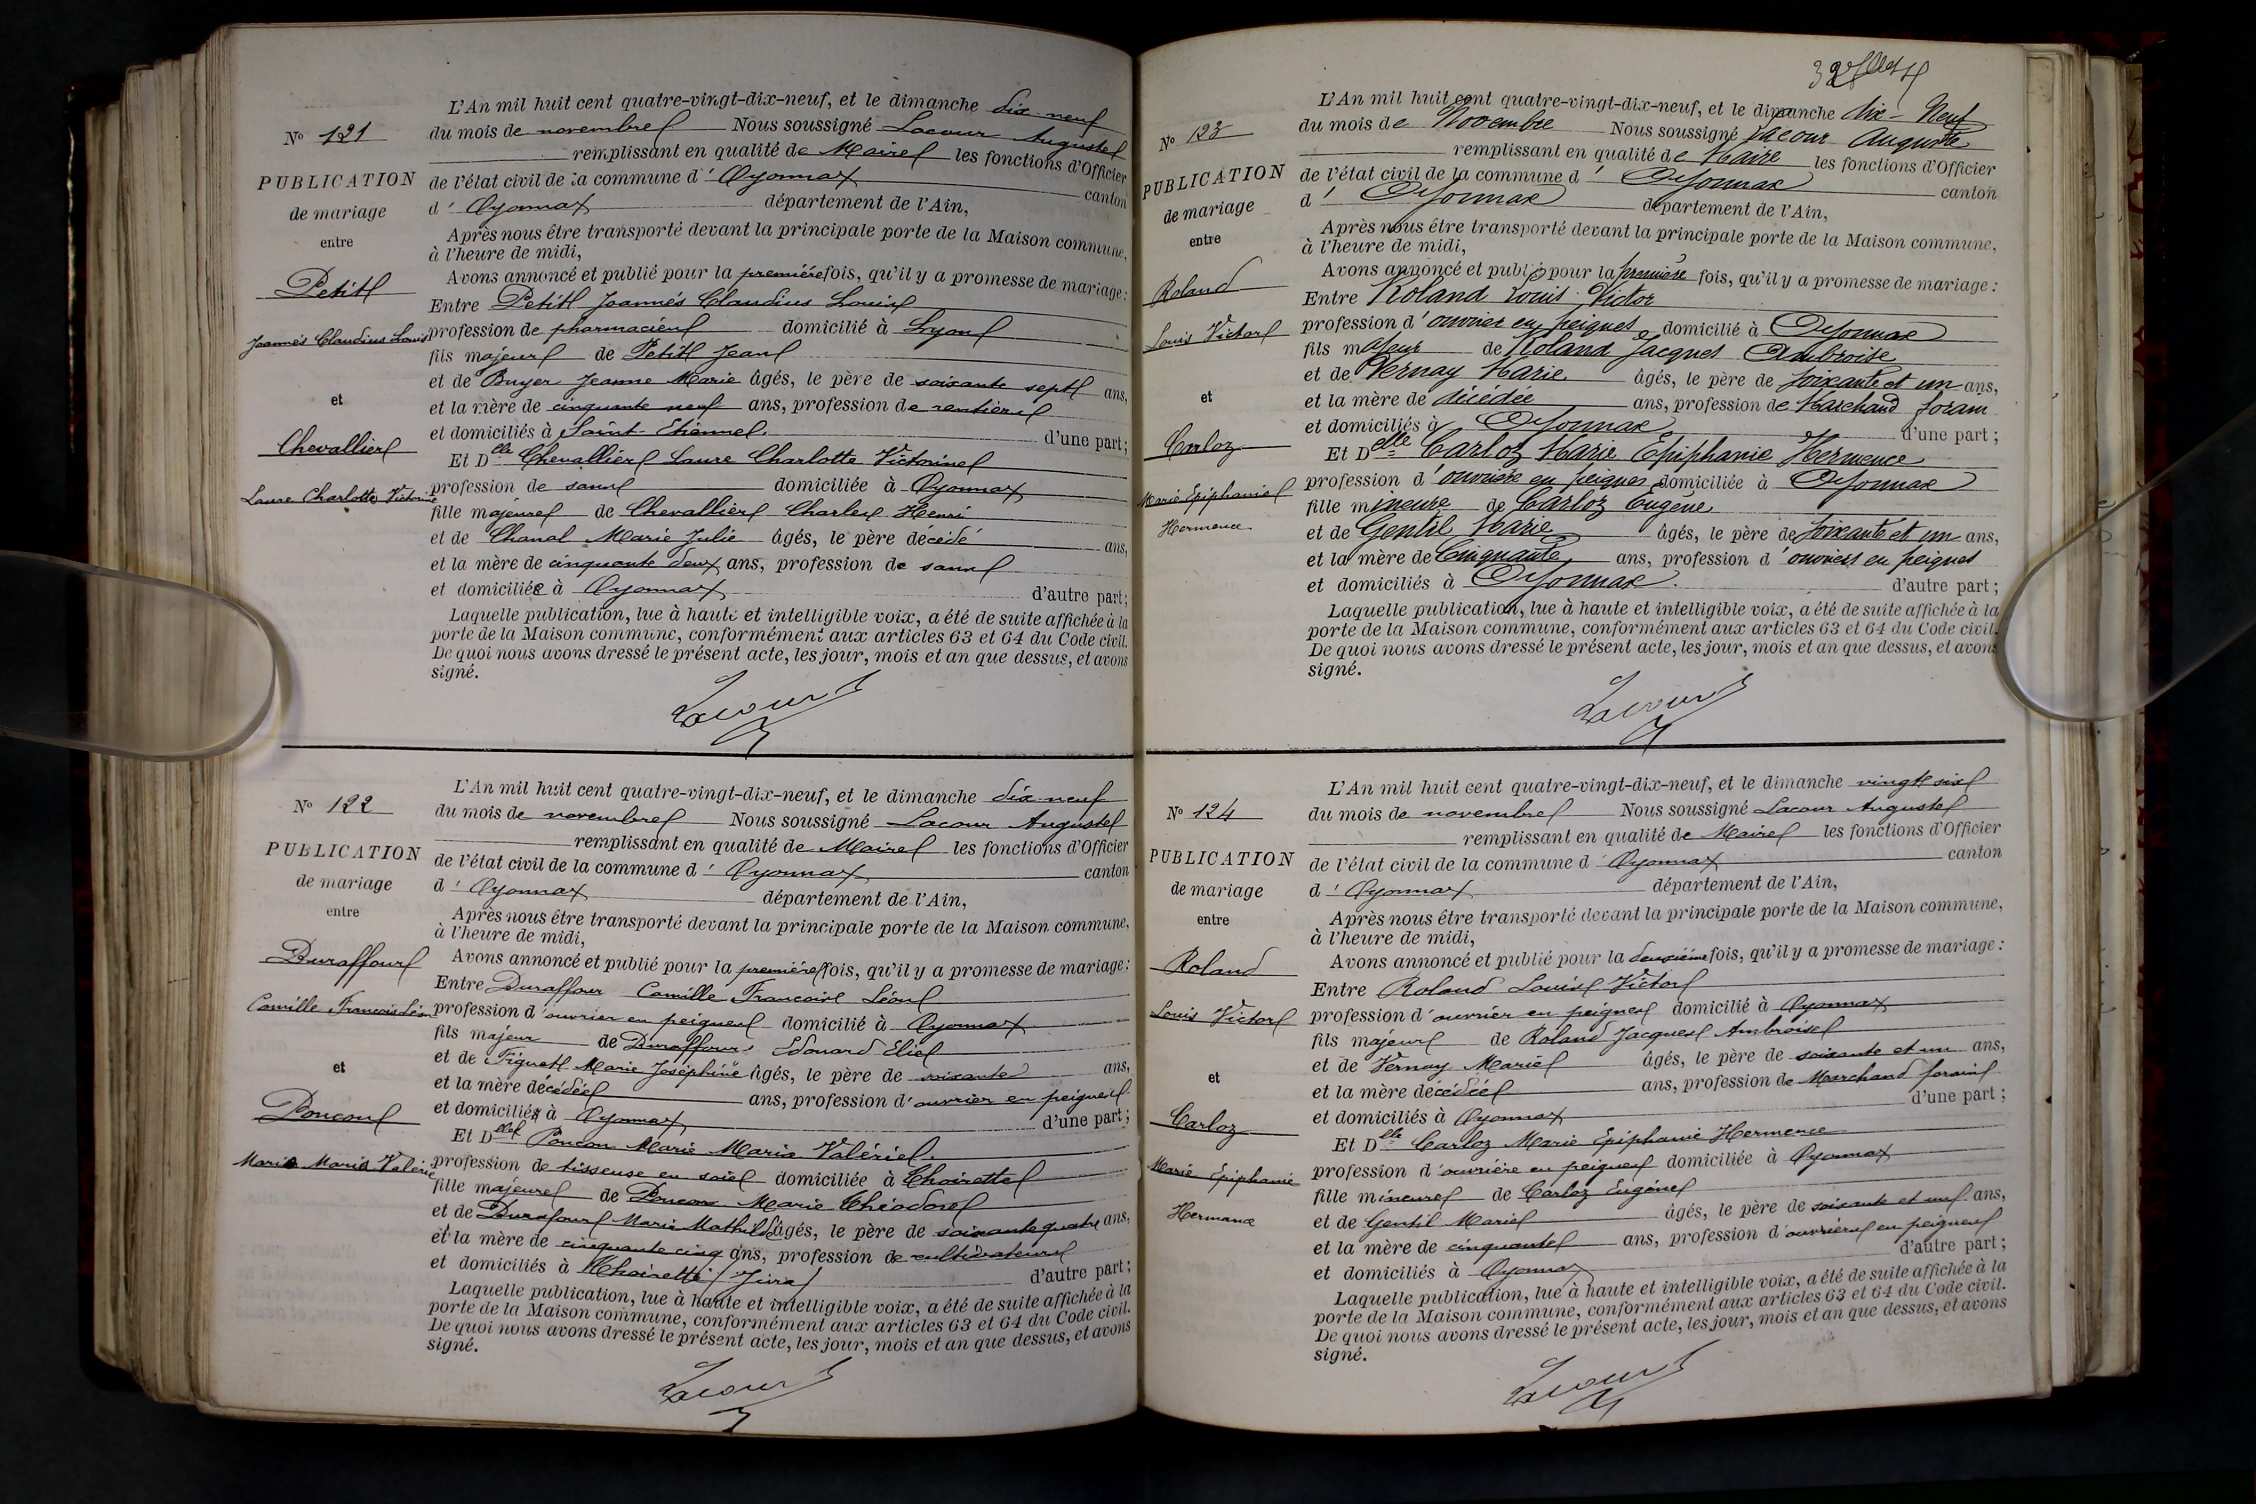 N° 121
PUBLICATION
de mariage
entre
Petit
Joannès Claudius Louis
et
Chevallier
Laure Charlotte Victorine
L'An mil huit cent quatre-vingt-dix-neuf, et le dimanche dix neuf
du mois de novembre Nous soussigné Lacour Auguste
remplissant en qualité de Maire les fonctions d'Officier
de l'état civil de la commune d' Oyonnax canton
d' Oyonnax département de l'Ain,
Après nous être transporté devant la principale porte de la Maison commune,
à l'heure de midi,
Avons annoncé et publié pour la première fois, qu'il y a promesse de mariage :
Entre Petit Joannès Claudius Louis
profession de pharmacien domicilié à Lyon
fils majeur de Petit Jean
et de Buyer Jeanne Marie âgés, le père de soixante sept ans,
et la mère de cinquante neuf ans, profession de rentiers
et domiciliés à Saint-Etienne d'une part ;
Et Delle Chevallier Laure Charlotte Victorine
profession de sans domiciliée à Oyonnax
fille majeure de Chevallier Charles Henri
et de Chanal Marie Julie âgés, le père décédé ans,
et la mère de cinquante deux ans, profession de sans
et domiciliée à Oyonnax d'autre part ;
Laquelle publication, lue à haute et intelligible voix, a été de suite affichée à la
porte de la Maison commune, conformément aux articles 63 et 64 du Code civil.
De quoi nous avons dressé le présent acte, les jour, mois et an que dessus, et avons
signé.
Lacour
N° 122
PUBLICATION
de mariage
entre
Duraffour
Camille François Léon
et
Poncon
Marie Maria Valérie
L'An mil huit cent quatre-vingt-dix-neuf, et le dimanche dix neuf
du mois de novembre Nous soussigné Lacour Auguste
remplissant en qualité de Maire les fonctions d'Officier
de l'état civil de la commune d' Oyonnax canton
d' Oyonnax département de l'Ain,
Après nous être transporté devant la principale porte de la Maison commune,
à l'heure de midi,
Avons annoncé et publié pour la première fois, qu'il y a promesse de mariage :
Entre Duraffour Camille François Léon
profession d'ouvrier en peignes domicilié à Oyonnax
fils majeur de Duraffour Edouard Elie
et de Figuet Marie Joséphine âgés, le père de soixante ans,
et la mère décédée ans, profession d'ouvrier en peignes
et domicilié à Oyonnax d'une part ;
Et Delle Poncon Marie Maria Valérie
profession de tisseuse en soie domiciliée à Choirette
fille majeure de Poncon Marie Théodore
et de Durafour Marie Mathilde âgés, le père de soixante quatre ans,
et la mère de cinquante cinq ans, profession de cultivateurs
et domiciliés à Choirette (Jura) d'autre part ;
Laquelle publication, lue à haute et intelligible voix, a été de suite affichée à la
porte de la Maison commune, conformément aux articles 63 et 64 du Code civil.
De quoi nous avons dressé le présent acte, les jour, mois et an que dessus, et avons
signé.
Lacour
N° 123
PUBLICATION
de mariage
entre
Roland
Louis Victor
et
Carloz
Marie Epiphanie
Hermence
L'An mil huit cent quatre-vingt-dix-neuf, et le dimanche dix-Neuf
du mois de Novembre Nous soussigné Lacour Auguste
remplissant en qualité de Maire les fonctions d'Officier
de l'état civil de la commune d' Oyonnax canton
d' Oyonnax département de l'Ain,
Après nous être transporté devant la principale porte de la Maison commune,
à l'heure de midi,
Avons annoncé et publié pour la première fois, qu'il y a promesse de mariage :
Entre Roland Louis Victor
profession d'ouvrier en peignes domicilié à Oyonnax
fils majeur de Roland Jacques Ambroise
et de Vernay Marie âgés, le père de soixante et un ans,
et la mère de décédée ans, profession de Marchand forain
et domiciliés à Oyonnax d'une part ;
Et Delle Carloz Marie Epiphanie Hermence
profession d'ouvrière en peignes domiciliée à Oyonnax
fille mineure de Carloz Eugène
et de Gentil Marie âgés, le père de soixante et un ans,
et la mère de Cinquante ans, profession d'ouvriers en peignes
et domiciliés à Oyonnax d'autre part ;
Laquelle publication, lue à haute et intelligible voix, a été de suite affichée à la
porte de la Maison commune, conformément aux articles 63 et 64 du Code civil.
De quoi nous avons dressé le présent acte, les jour, mois et an que dessus, et avons
signé.
Lacour
N° 124
PUBLICATION
de mariage
entre
Roland
Louis Victor
et
Carloz
Marie Epiphanie
Hermance
L'An mil huit cent quatre-vingt-dix-neuf, et le dimanche vingt six
du mois de novembre Nous soussigné Lacour Auguste
remplissant en qualité de Maire les fonctions d'Officier
de l'état civil de la commune d' Oyonnax canton
d' Oyonnax département de l'Ain,
Après nous être transporté devant la principale porte de la Maison commune,
à l'heure de midi,
Avons annoncé et publié pour la deuxième fois, qu'il y a promesse de mariage :
Entre Roland Louis Victor
profession d'ouvrier en peignes domicilié à Oyonnax
fils majeur de Roland Jacques Ambroise
et de Vernay Marie âgés, le père de soixante et un ans,
et la mère décédée ans, profession de Marchand forain
et domiciliés à Oyonnax d'une part ;
Et Delle Carloz Marie Epiphanie Hermence
profession d'ouvrière en peignes domiciliée à Oyonnax
fille mineure de Carloz Eugène
et de Gentil Marie âgés, le père de soixante et un ans,
et la mère de cinquante ans, profession d'ouvriers en peignes
et domiciliés à Oyonnax d'autre part ;
Laquelle publication, lue à haute et intelligible voix, a été de suite affichée à la
porte de la Maison commune, conformément aux articles 63 et 64 du Code civil.
De quoi nous avons dressé le présent acte, les jour, mois et an que dessus, et avons
signé.
Lacour